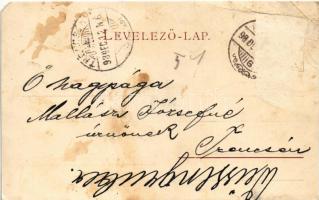 LEVELEZŐ-LAP.
Ő nagysága
Mallász Józsefné
úrnőnek
Trencsén